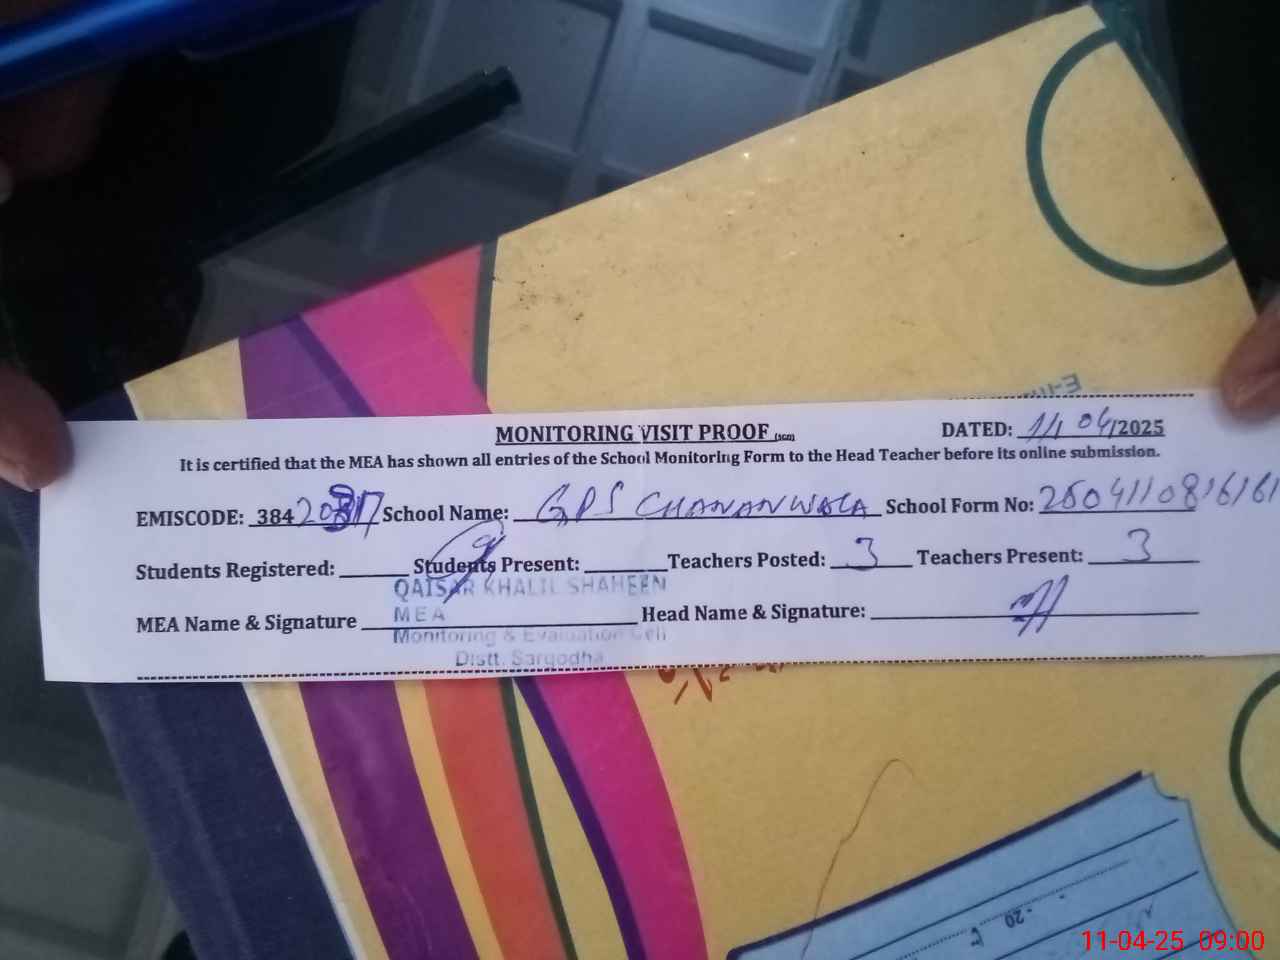 MONITORING VISIT PROOF (scm) DATED: 11/04/2025
It is certified that the MEA has shown all entries of the School Monitoring Form to the Head Teacher before its online submission.
EMISCODE: 384 School Name: GPS CHANANWALA School Form No: 2504110816161
Students Registered: Students Present: Teachers Posted: 3 Teachers Present: 3
QAISAR KHALIL SHAHEEN
MEA Name & Signature MEA Head Name & Signature:
Monitoring & Evaluation Cell
Distt. Sargodha
-20-
11-04-25 09:00